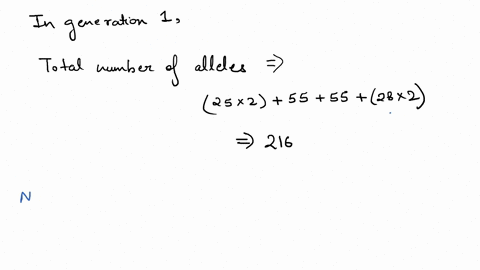 In generation 1,
Total number of alleles ⇒
(25×2) + 55 + 55 + (28×2)
⇒ 216
N